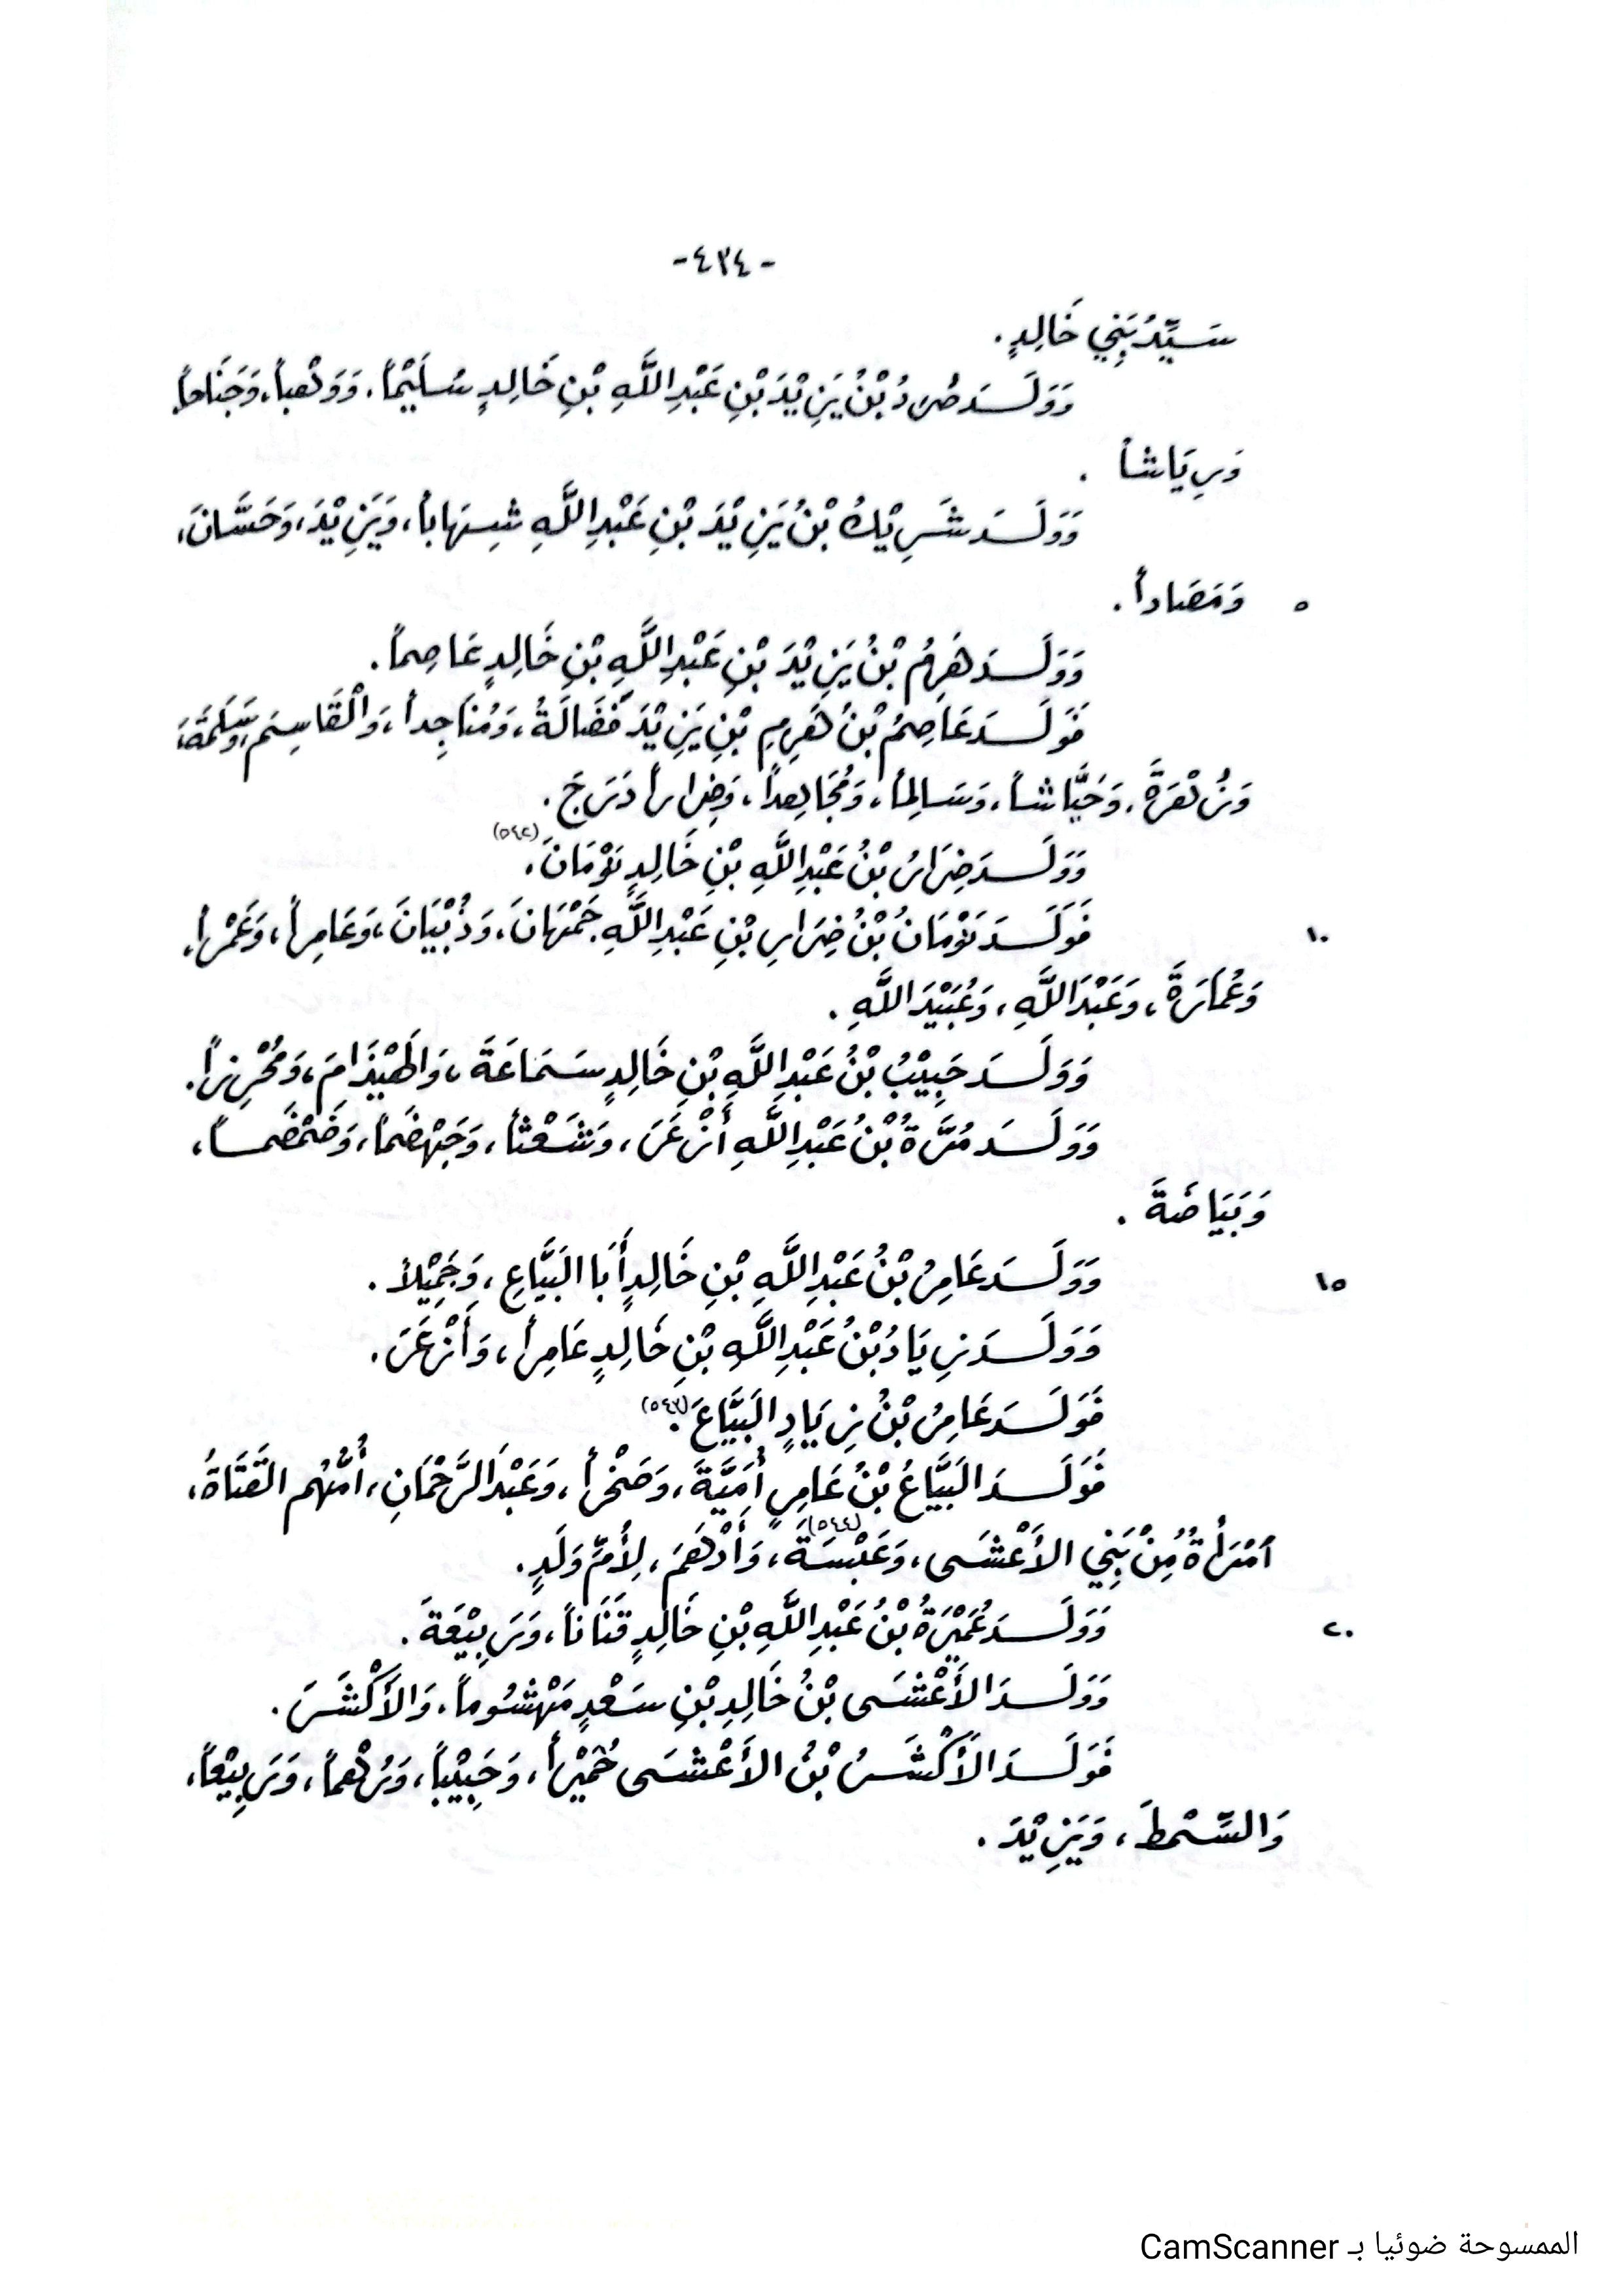 -٤٣٤-
سَيِّدُ بَنِي خَالِدٍ.
وَوَلَدَ صُرَدُ بْنُ يَزِيْدَ بْنِ عَبْدِ اللَّهِ بْنِ خَالِدٍ سُلَيْمًا، وَوَهْباً، وَجَنَاحاً،
وَرِيَاشاً .
وَوَلَدَ شَرِيْكُ بْنُ يَزِيْدَ بْنِ عَبْدِ اللَّهِ شِهَاباً، وَيَزِيْدَ، وَحَسَّانَ،
٥ وَمَصَاداً .
وَوَلَدَ هَرِمُ بْنُ يَزِيْدَ بْنِ عَبْدِ اللَّهِ بْنِ خَالِدٍ عَاصِماً.
فَوَلَدَ عَاصِمُ بْنُ هَرِمِ بْنِ يَزِيْدَ فَضَالَةُ، وَمُنَاجِداً، وَالْقَاسِمَ، وَسَلَمَةَ،
وَزُهْرَةَ، وَحَيَّاشاً، وَسَالِماً، وَمُجَاهِداً، وَضِرَاراً دَرَجَ.
وَوَلَدَ ضِرَارُ بْنُ عَبْدِ اللَّهِ بْنِ خَالِدٍ نَوْمَانَ.(٥٤٢)
١٠ فَوَلَدَ نَوْمَانُ بْنُ ضِرَارِ بْنِ عَبْدِ اللَّهِ جَمْهَانَ، وَذُبْيَانَ، وَعَامِراً، وَعَمْراً،
وَعُمَارَةَ، وَعَبْدَ اللَّهِ، وَعُبَيْدَ اللَّهِ .
وَوَلَدَ حَبِيْبُ بْنُ عَبْدِ اللَّهِ بْنِ خَالِدٍ سَمَاعَةَ، وَالْهَيْذَامَ، وَمُحْرِزاً.
وَوَلَدَ مُرَّةُ بْنُ عَبْدِ اللَّهِ أَزْعَرَ، وَشَعْثاً، وَجَهْضَماً، وَضَمْضَمـاً،
وَبَيَاضَةَ .
١٥ وَوَلَدَ عَامِرُ بْنُ عَبْدِ اللَّهِ بْنِ خَالِدٍ أَبَا البَيَّاعِ، وَجَمِيْلاً.
وَوَلَدَ زِيَادُ بْنُ عَبْدِ اللَّهِ بْنِ خَالِدٍ عَامِراً، وَأَزْعَرَ.
فَوَلَدَ عَامِرُ بْنُ زِيَادٍ البَيَّاعَ.(٥٤٣)
فَوَلَدَ البَيَّاعُ بْنُ عَامِرٍ أُمَيَّةَ، وَصَخْراً، وَعَبْدَ الرَّحْمَانِ، أُمُّهُم القَتَاةُ،
اَمْرَأَةٌ مِنْ بَنِي الأَعْشَى، وَعَبْسَةَ،(٥٤٤) وَأَدْهَمَ، لِأُمِّ وَلَدٍ.
٢٠ وَوَلَدَ عُمَيْرَةُ بْنُ عَبْدِ اللَّهِ بْنِ خَالِدٍ قَنَاناً، وَرَبِيْعَةَ.
وَوَلَدَ الأَعْشَى بْنُ خَالِدِ بْنِ سَعْدٍ مَهْشُوماً، وَالأَكْشَرَ.
فَوَلَدَ الأَكْشَرُ بْنُ الأَعْشَى حُمَيْراً، وَحَبِيْباً، وَرُهْماً، وَرَبِيْعاً،
وَالسِّمْطَ، وَيَزِيْدَ .
الممسوحة ضوئيا بـ CamScanner